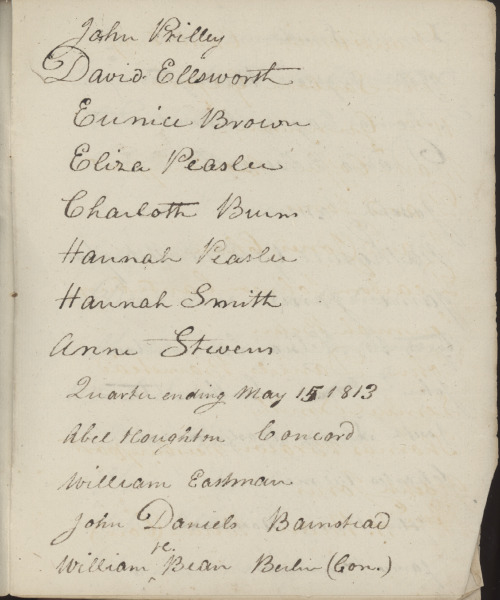 John Prilley
David Ellsworth
Eunice Brown
Eliza Peaslee
Charloth Burns
Hannah Peaslee
Hannah Smith
Anne Stevens
Quarter ending May 15 1813
Abel Houghton Concord
William Eastman
John Daniels Barnstead
William Bean Berlin (Con.)